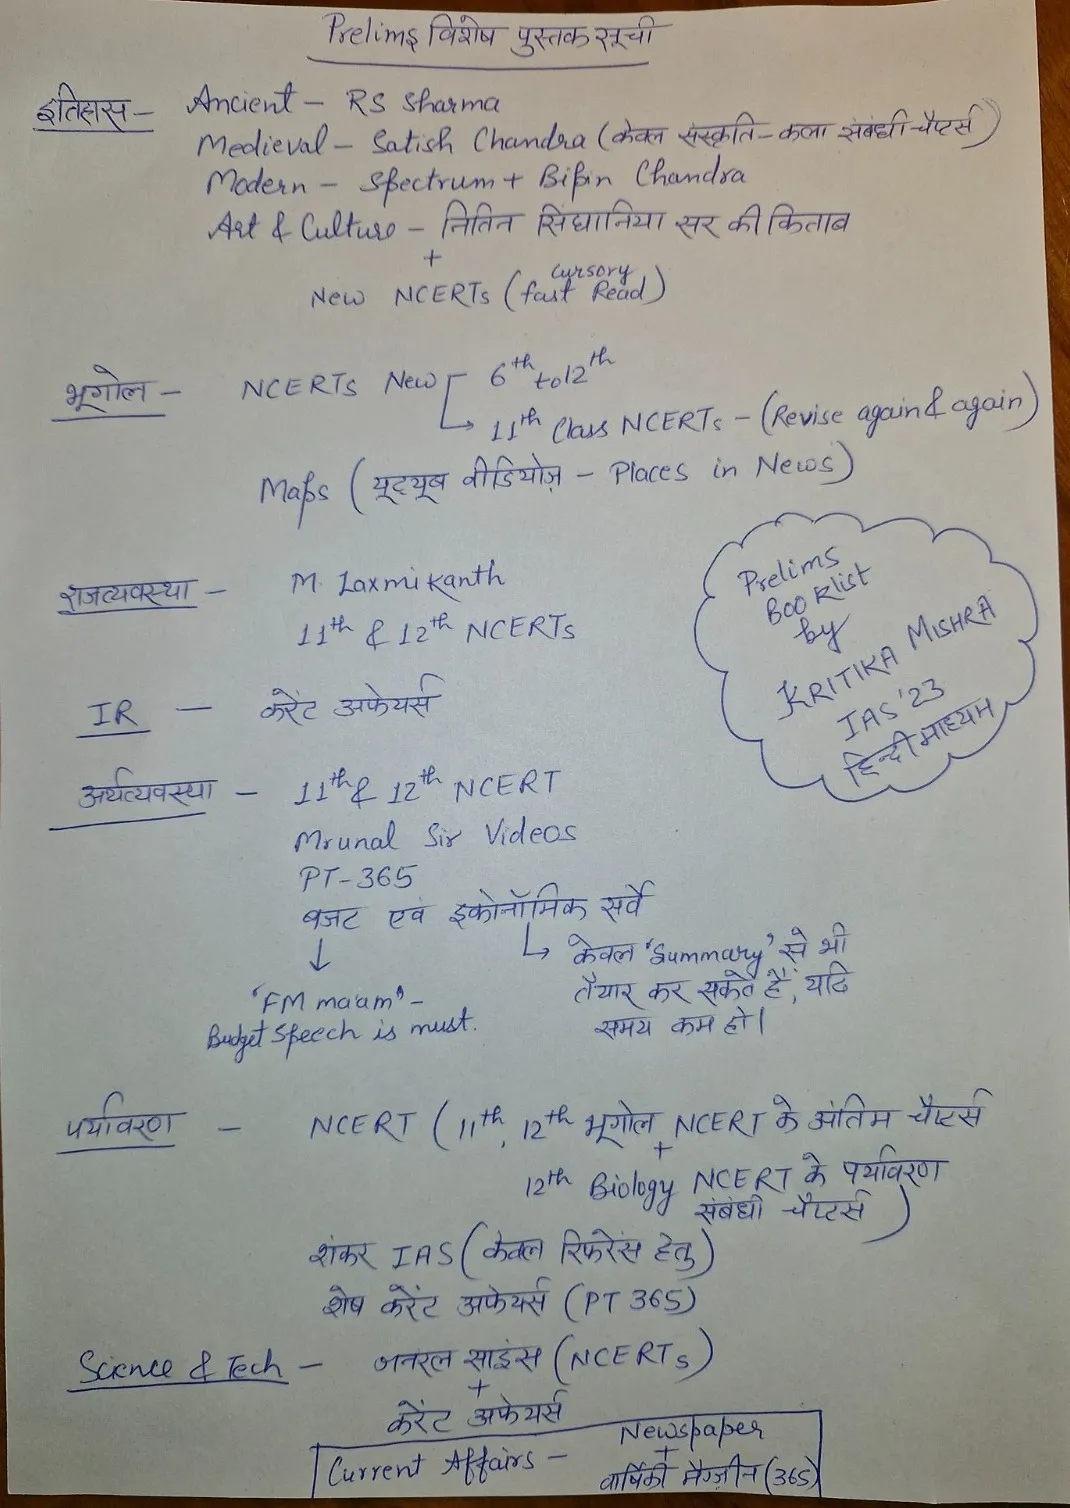 Prelims विशेष पुस्तक सूची
इतिहास - Ancient - RS Sharma
Medieval - Satish Chandra (केवल संस्कृति-कला संबंधी चैप्टर्स)
Modern - Spectrum + Bipin Chandra
Art & Culture - नितिन सिंघानिया सर की किताब
+
Cursory
New NCERTs (fast Read)
भूगोल - NCERTs New 6th to 12th
11th Class NCERTs - (Revise again & again)
Maps (यूट्यूब वीडियोज़ - Places in News)
राजव्यवस्था - M. Laxmikanth
11th & 12th NCERTs
Prelims
Booklist
by
KRITIKA MISHRA
IAS '23
हिन्दी माध्यम
IR - करेंट अफेयर्स
अर्थव्यवस्था - 11th & 12th NCERT
Mrunal Sir Videos
PT-365
बजट एवं इकोनॉमिक सर्वे
केवल 'Summary' से भी
तैयार कर सकते हैं, यदि
समय कम हो।
'FM ma'am' -
Budget Speech is must.
पर्यावरण - NCERT (11th, 12th भूगोल NCERT के अंतिम चैप्टर्स
+
12th Biology NCERT के पर्यावरण
संबंधी चैप्टर्स)
शंकर IAS (केवल रिफरेंस हेतु)
शेष करेंट अफेयर्स (PT 365)
Science & Tech - जनरल साइंस (NCERTs)
+
करेंट अफेयर्स
Current Affairs - Newspaper
+
वार्षिकी मैग्ज़ीन (365)